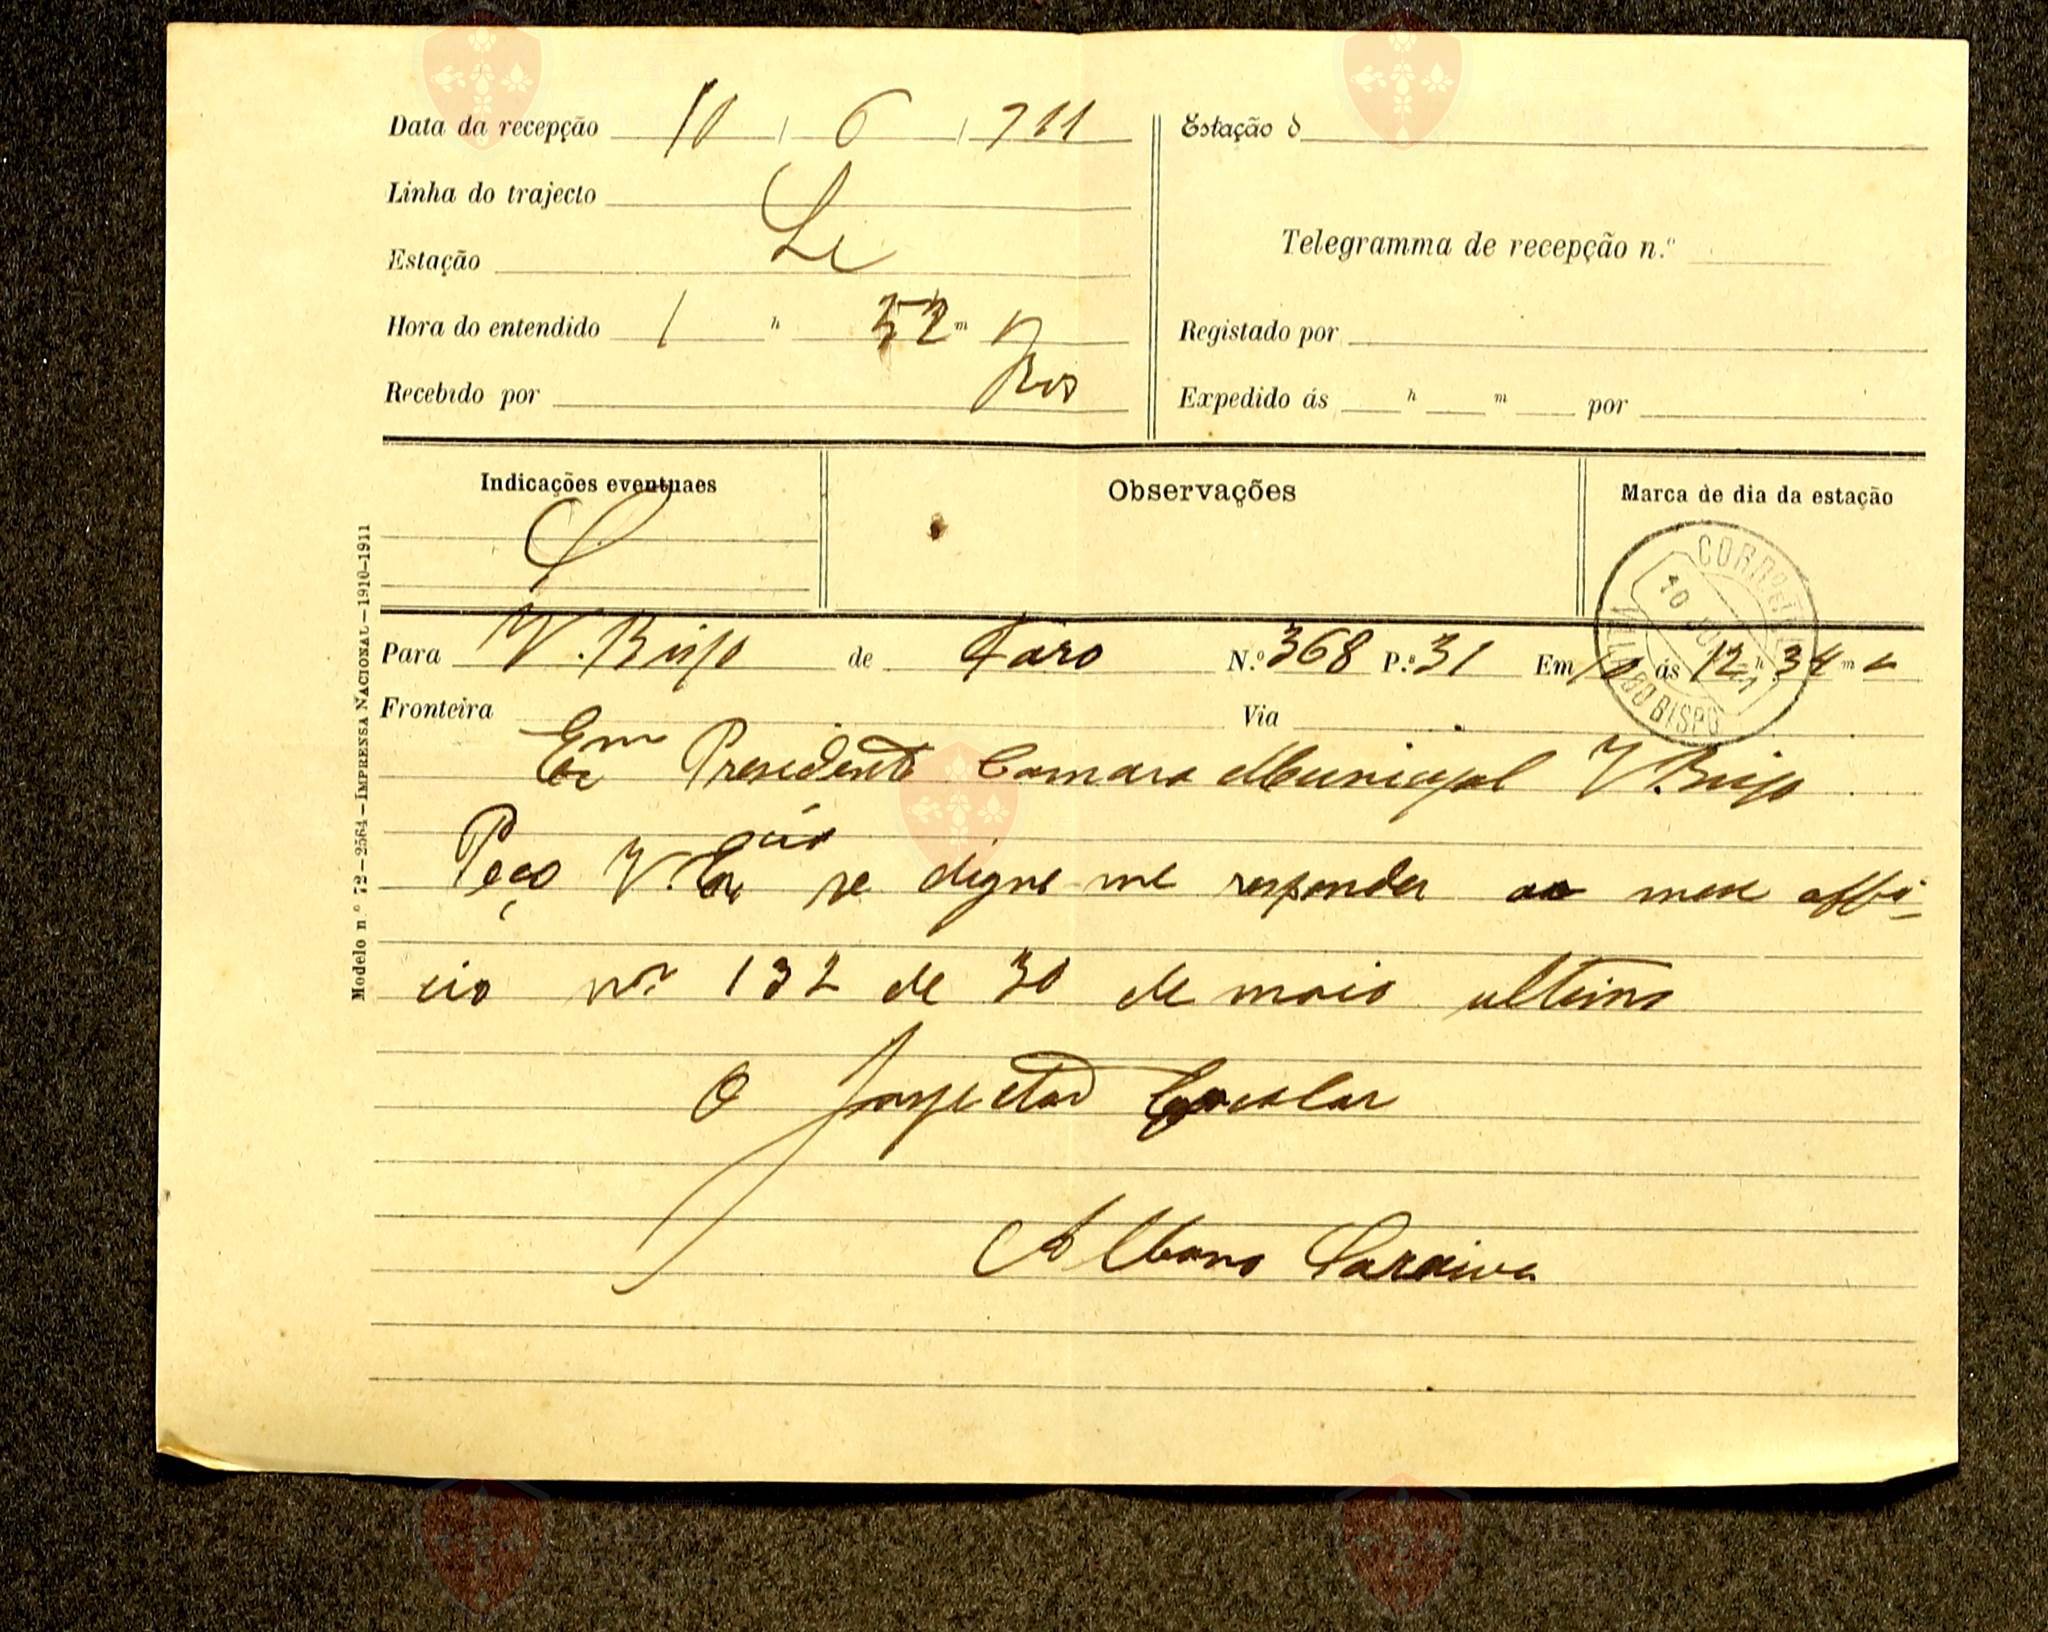 Data da recepção 10 / 6 / 911
Linha do trajecto
Estação Li
Hora do entendido 1 h 52 m
Recebido por
Estação d
Telegramma de recepção n.º
Registado por
Expedido ás h m por
Indicações eventuaes
Observações
Marca de dia da estação
CORRº E TEL
10 JUN 11
VILA DO BISPO
Para V. Bispo de Faro N.º 368 P.ª 31 Em 10 ás 12 h 34 m
Fronteira Via
Exmo Presidente Camara Municipal V. Bispo
Peço V. Excia se digne me responder ao meu offi-
cio nº 132 de 30 de maio ultimo
O Inspector Escolar
Albano Saraiva
Modelo n.º 72–2564–IMPRENSA NACIONAL–1910-1911